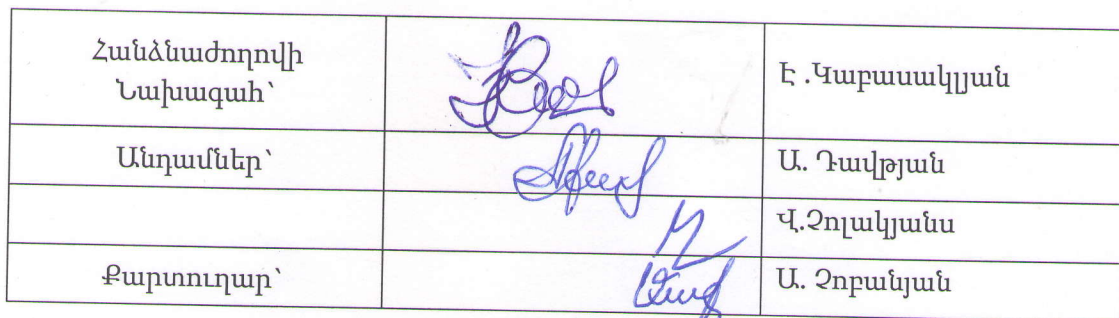 Հանձնաժողովի
Նախագահ՝
Է .Կաբասակլյան
Անդամներ՝
Ա. Դավթյան
Վ.Չոլակյանս
Քարտուղար՝
Ա. Չոբանյան